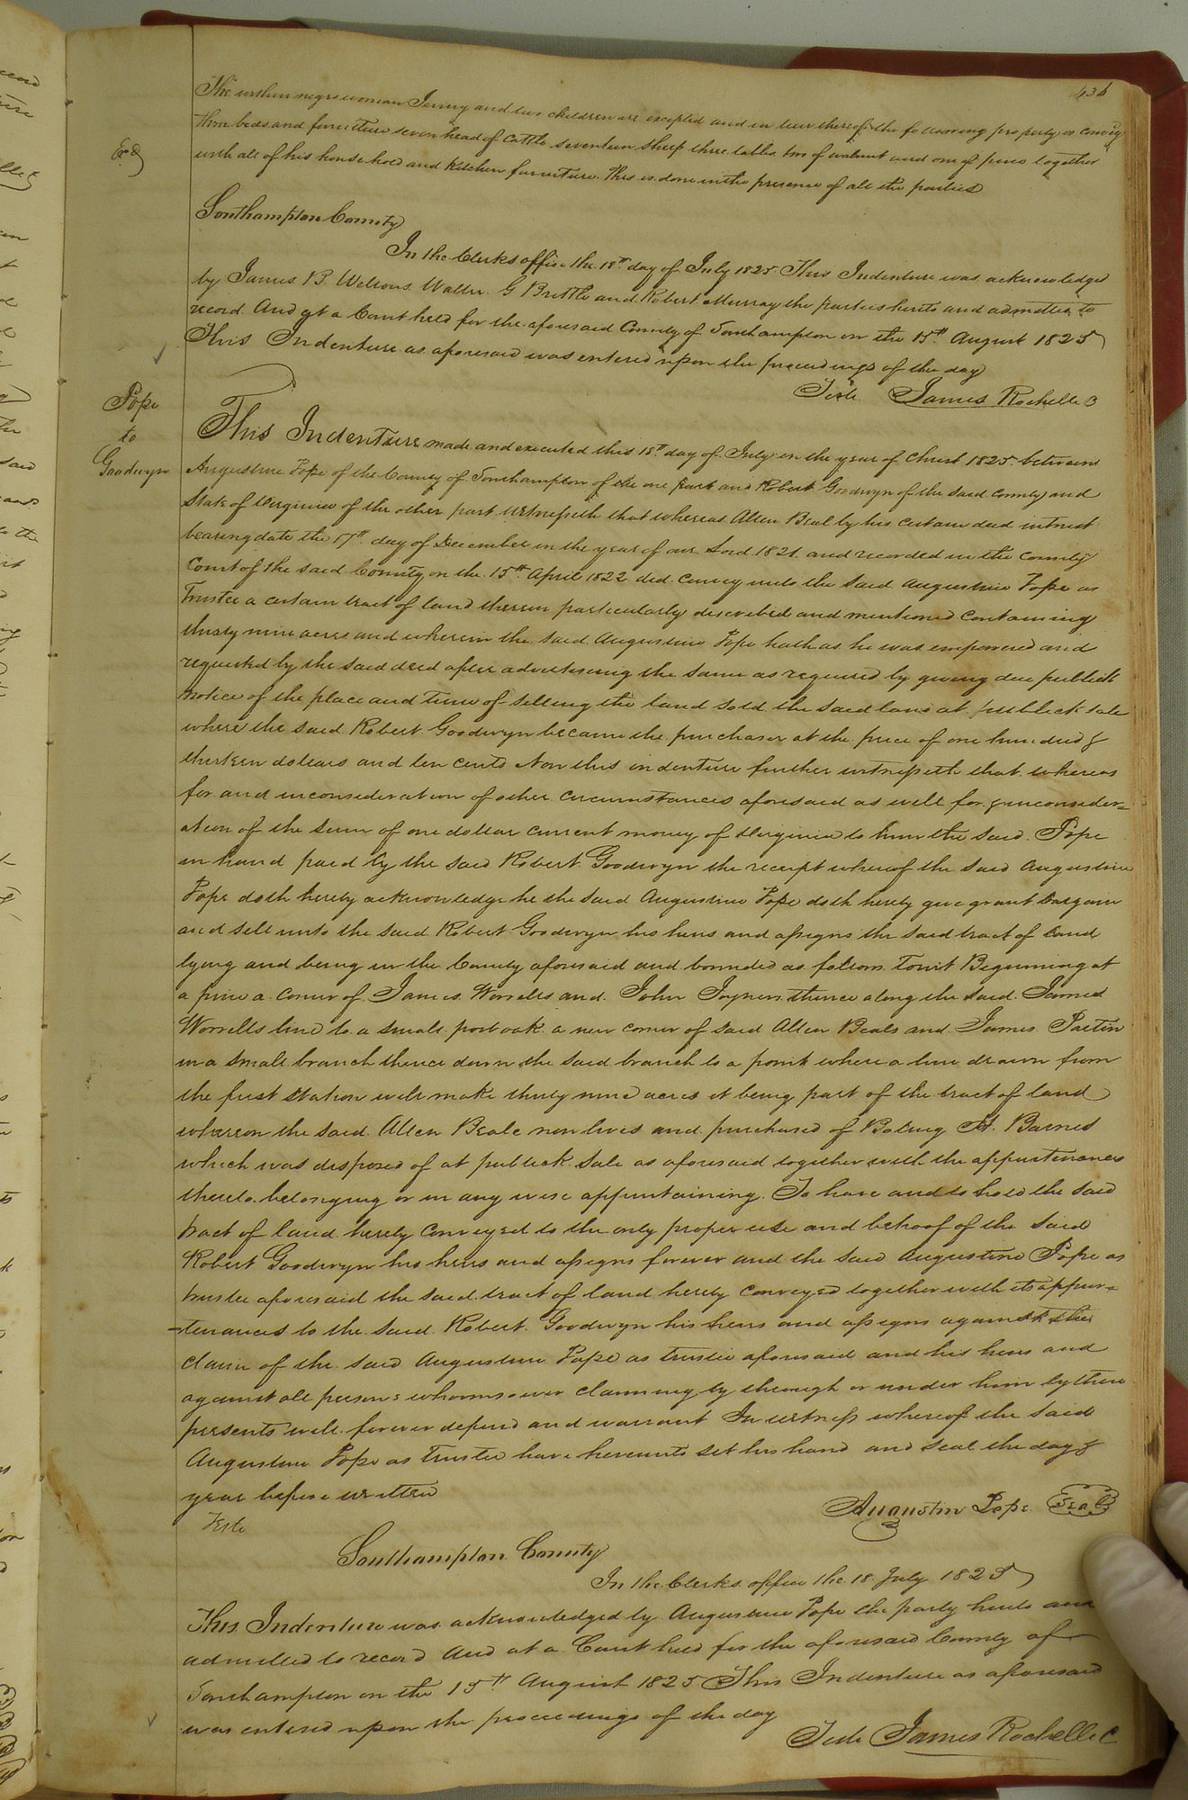 436
The within negro woman Jenny and two children are excepted and in lieu thereof the following property is convey
Exd
three beds and furniture seven head of Cattle seventeen sheep three tables two of walnut and one of pine together
with all of his house hold and kitchen furniture. This is done in the presence of all the parties
Southampton County
In the Clerks office the 18th day of July 1825 This Indenture was acknowledged
by James B. Wellons Walter G Brittle and Robert Murray the parties hereto and admitted to
record And at a Court held for the aforesaid County of Southampton on the 15th August 1825
This Indenture as aforesaid was entered upon the proceedings of the day
Teste James Rochelle C
Pope
to
Goodwyn
This Indenture made and executed this 18th day of July in the year of Christ 1825 between
Augustine Pope of the County of Southampton of the one part and Robert Goodwyn of the said County and
State of Virginia of the other part Witnesseth that whereas Allen Beal by his certain deed intrust
bearing date the 17th day of December in the year of our Lord 1821 and recorded in the County
Court of the said County on the 15th April 1822 did convey unto the said Augustine Pope as
Trustee a certain tract of land therein particularly described and mentioned Containing
thirty nine acres and wherein the said Augustine Pope hath as he was empowered and
requested by the said deed after advertising the same as required by giving due publick
notice of the place and time of selling the land sold the said land at publick sale
where the said Robert Goodwyn became the purchaser at the price of one hundred &
thirteen dollars and ten cents Now this indenture further witnesseth that whereas
for and inconsideration of other circumstances aforesaid as well for & inconsider=
ation of the sum of one dollar current money of Virginia to him the said Pope
in hand paid by the said Robert Goodwyn the receipt whereof the said Augustine
Pope doth hereby acknowledge he the said Augustine Pope doth hereby give grant bargain
and sell unto the said Robert Goodwyn his heirs and assigns the said tract of land
lying and being in the County aforesaid and bounded as follows Towit Beginning at
a pine a corner of James Worrells and John Joyners thence along the said James
Worrells line to a small post oak a new corner of said Allen Beals and James Partin
in a small branch thence down the said branch to a point where a line drawn from
the first station will make thirty nine acres it being part of the tract of land
whereon the said Allen Beale now lives and purchased of Boling H. Barnes
which was disposed of at publick sale as aforesaid together with the appurtenances
thereto belonging or in any wise appurtaining. To have and to hold the said
tract of land hereby conveyed to the only proper use and behoof of the said
Robert Goodwyn his heirs and assigns forever and the said Augustine Pope as
trustee aforesaid the said tract of land hereby conveyed together with its appur=
=tenances to the said Robert Goodwyn his heirs and assigns against the
claim of the said Augustine Pope as trustee aforesaid and his heirs and
against all persons whomsoever claiming by through or under him by these
presents will forever defend and warrant In witness whereof the said
Augustine Pope as trustee have hereunto set his hand and seal the day &
year before written
Teste
Augustin Pope Seal
Southampton County
In the Clerks office the 18 July 1825
This Indenture was acknowledged by Augustine Pope the party hereto and
admitted to record And at a Court held for the aforesaid County of
Southampton on the 15th August 1825 This Indenture as aforesaid
was entered upon the proceedings of the day
Teste James Rochelle C